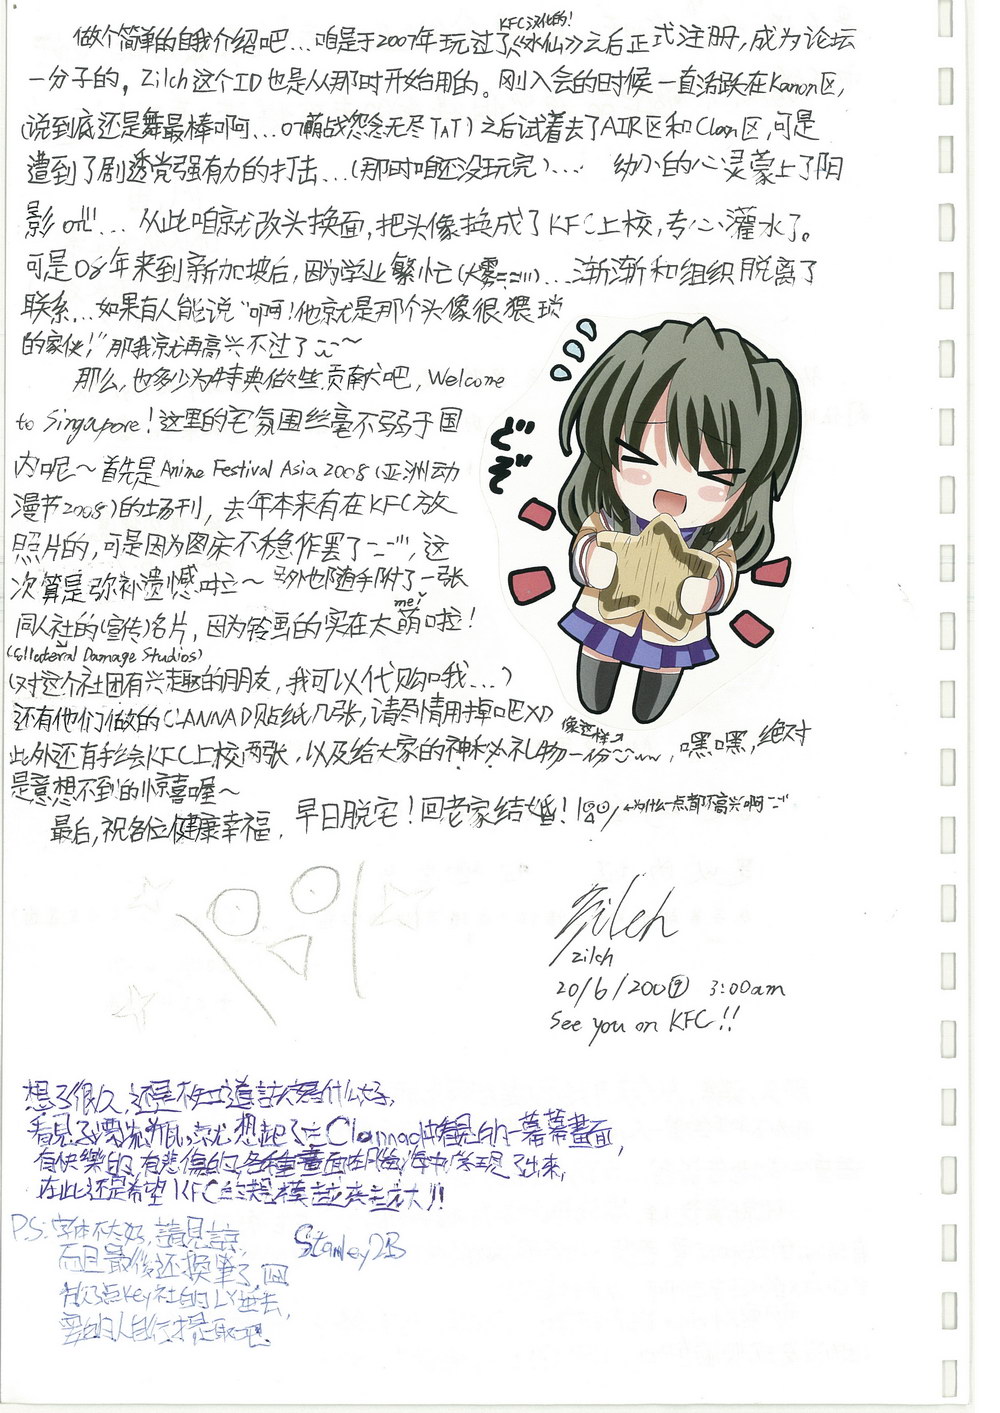 KFC汉化的!
做个简单的自我介绍吧...咱是于2007年玩过了《水仙》之后正式注册,成为论坛
一分子的, Zilch这个ID也是从那时开始启用的。刚入会的时候一直活跃在Kanon区,
(说到底还是舞最棒啊...07萌战怨念无尽TAT)之后试着去了AIR区和Clan区,可是
遭到了剧透党强有力的打击...(那时咱还没玩完)... 幼小的心灵蒙上了阴
影...从此咱就改头换面,把头像换成了KFC上校,专心灌水了。
可是08年来到新加坡后,因为学业繁忙(大雾)...渐渐和组织脱离了
联系...如果有人能说"啊!他就是那个头像很猥琐
的家伙!"那我就再高兴不过了~
那么,也多少为特典做些贡献吧, Welcome
to Singapore!这里的宅氛围丝毫不弱于国
内呢~ 首先是Anime Festival Asia 2008(亚洲动
漫节2008)的场刊,去年本来有在KFC放
照片的,可是因为图床不稳作罢了,这
次算是弥补遗憾啦~ 另外也随手附了一张
me!
同人社的(宣传)名片,因为铃画的实在太萌啦!
(Collateral Damage Studios)
(对这个社团有兴趣的朋友,我可以代购哦...)
还有他们做的CLANNAD贴纸几张,请尽情用掉吧XD
像这样↗
此外还有手绘KFC上校两张,以及给大家的神秘礼物一份,嘿嘿,绝对
是意想不到的惊喜喔~
最后,祝各位健康幸福,早日脱宅!回老家结婚! ←为什么一点都不高兴啊
どぞ
Zilch
Zilch
20/6/2009 3:00am
See you on KFC!!
想了很久,还是不知道該寫什么好,
看見了漂流瓶,就想起了在Clannad中看見的一幕幕畫面,
有快樂的,有悲傷的,各種畫面在腦海中浮現了出來,
在此还是希望KFC的規模越来越大!!
P.S:字体不太好,請見諒,
而且最後还換筆了,
key社的
的人自行提取吧
Stanley2B